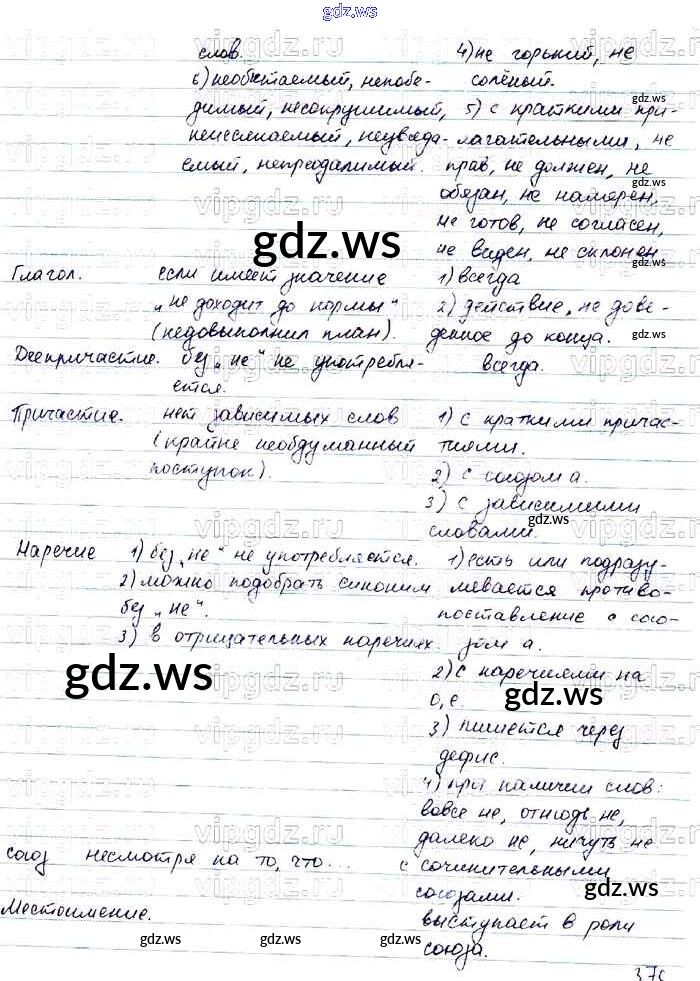 gdz.ws
слов. 4) не горький, не
6) необитаемый, непобе- солёный.
димый, несокрушимый, 5) с краткими при-
неиссякаемый, неувяда- лагательными, не
емый, непреодолимый. прав, не должен, не
обязан, не намерен,
не готов, не согласен,
gdz.ws
не виден, не склонен
Глагол. если имеет значение 1) всегда
„не доходит до нормы“ 2) действие, не дове-
(недовыполнил план). денное до конца.
Деепричастие. без „не“ не употребля- всегда.
ется.
Причастие. нет зависимых слов 1) с краткими причас-
(крайне необдуманный тиями.
поступок). 2) с союзом а.
3) с зависимыми
словами.
Наречие 1) без „не“ не употребляется. 1) есть или подразу-
2) можно подобрать синоним мевается противо-
без „не“. поставление с сою-
3) в отрицательных наречиях. зом а.
2) с наречиями на
gdz.ws gdz.ws
о, е.
3) пишется через
дефис.
4) при наличии слов:
вовсе не, отнюдь не,
далеко не, ничуть не
союз несмотря на то, что... с сочинительными
союзами.
Местоимение. выступает в роли
gdz.ws gdz.ws gdz.ws
союза.